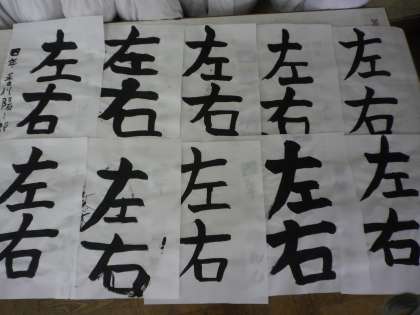 左右
左右
左右
左右
左右
左右
左右
左右
左右
左右